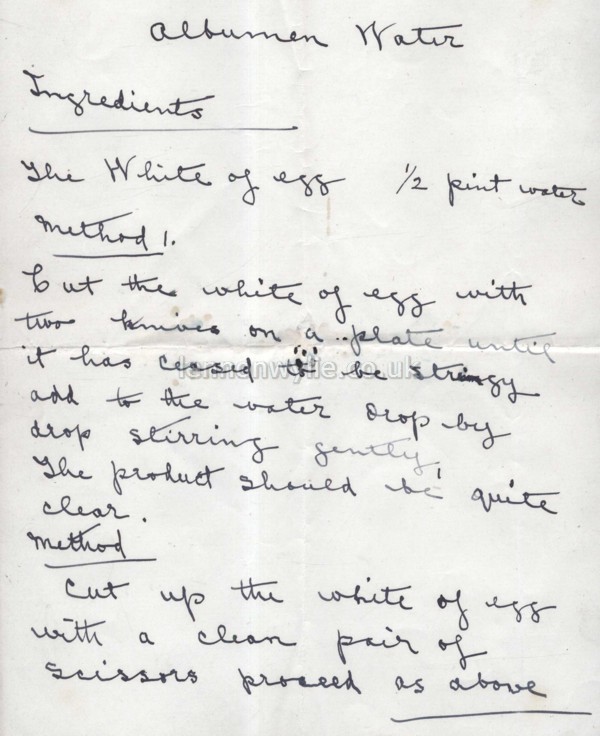 Albumen Water
Ingredients
The White of egg 1/2 pint water
Method 1.
Cut the white of egg with
two knives on a plate until
it has ceased to be stringy
add to the water drop by
drop stirring gently,
The product should be quite
clear.
Method
Cut up the white of egg
with a clean pair of
scissors proceed as above
lennonwylie.co.uk